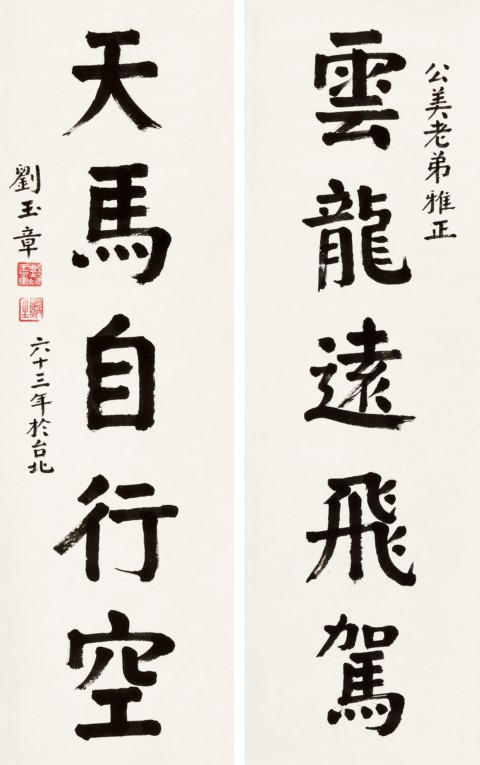 公美老弟雅正
雲龍遠飛駕
天馬自行空
劉玉章
六十三年於台北